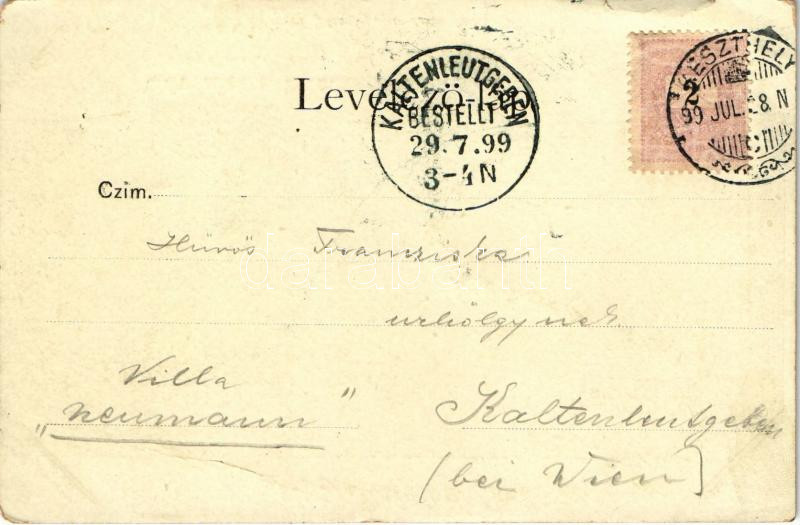 Levelező-Lap
KALTENLEUTGEBEN
BESTELLT
29.7.99
3-4 N
KESZTHELY
99 JUL. 28. N
C
2
Czim.
Hüvös Franciska
urhölgynek
Villa
„Neumann"
Kaltenleutgeben
(bei Wien)
darabanth